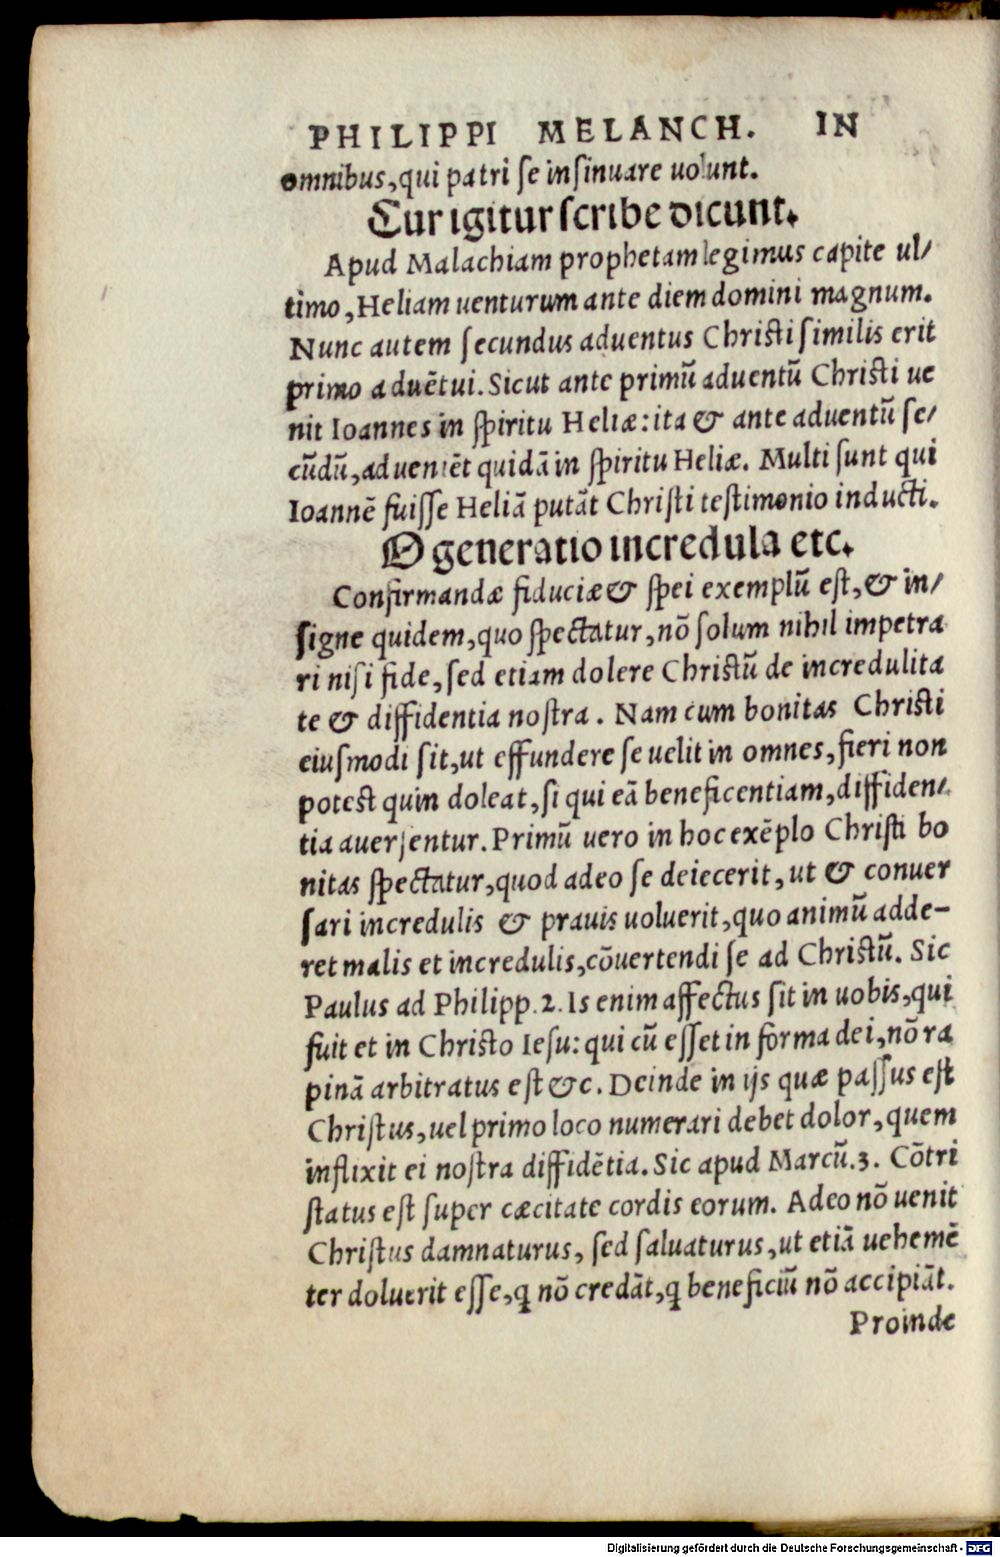 PHILIPPI MELANCH. IN
omnibus, qui patri se insinuare uolunt.
Cur igitur scribe dicunt.
Apud Malachiam prophetam legimus capite ul/
timo, Heliam uenturum ante diem domini magnum.
Nunc autem secundus aduentus Christi similis erit
primo aduẽtui. Sicut ante primũ aduentũ Christi ue
nit Ioannes in spiritu Heliæ: ita & ante aduentũ se/
cũdũ, aduenıẽt quidã in spiritu Heliæ. Multi sunt qui
Ioannẽ fuisse Heliã putãt Christi testimonio inducti.
O generatio incredula etc.
Confirmandæ fiduciæ & spei exemplũ est, & in/
signe quidem, quo spectatur, nõ solum nihil impetra
ri nisi fide, sed etiam dolere Christũ de incredulita
te & diffidentia nostra. Nam cum bonitas Christi
eiusmodi sit, ut effundere se uelit in omnes, fieri non
potest quin doleat, si qui eã beneficentiam, diffiden/
tia auersentur. Primũ uero in hoc exẽplo Christi bo
nitas spectatur, quod adeo se deiecerit, ut & conuer
sari incredulis & prauis uoluerit, quo animũ adde-
ret malis et incredulis, cõuertendi se ad Christũ. Sic
Paulus ad Philipp. 2. Is enim affectus sit in uobis, qui
fuit et in Christo Iesu: qui cũ esset in forma dei, nõ ra
pinã arbitratus est &c. Deinde in ijs quæ passus est
Christus, uel primo loco numerari debet dolor, quem
inflixit ei nostra diffidẽtia. Sic apud Marcũ. 3. Cõtri
status est super cæcitate cordis eorum. Adeo nõ uenit
Christus damnaturus, sed saluaturus, ut etiã uehemẽ
ter doluerit esse, q̃ nõ credãt, q̃ beneficiũ nõ accipiãt.
Proinde
Digitalisierung gefördert durch die Deutsche Forschungsgemeinschaft - DFG